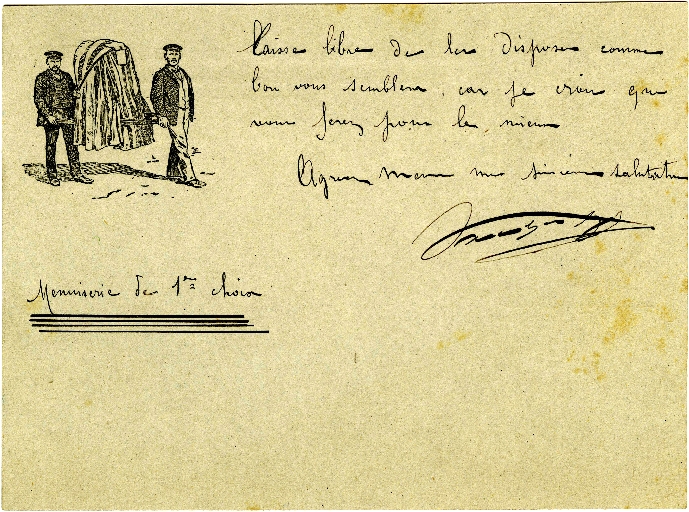 laisse libre de les disposer comme
bon vous semblera, car je crois que
vous ferez pour le mieux
Agréer mes sincères salutations
Menuiserie de 1ère choix